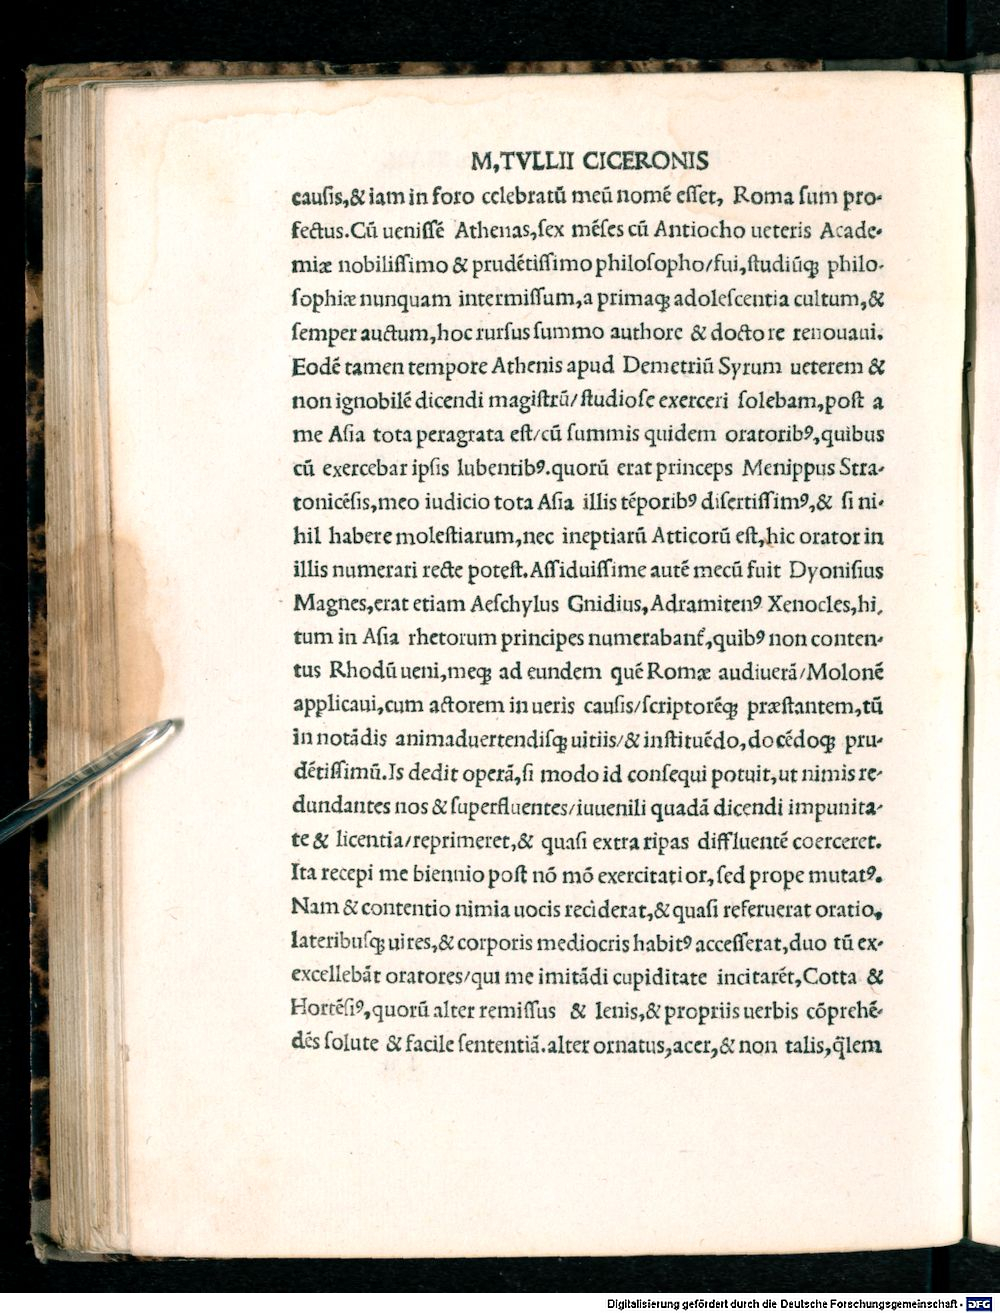 M,TVLLII CICERONIS
cauſis,& iam in foro celebratū meū nomē eſſet, Roma ſum pro-
fectus.Cū ueniſſē Athenas,ſex mēſes cū Antiocho ueteris Acade-
miæ nobiliſſimo & prudētiſſimo philoſopho/fui,ſtudiūqꝫ philo-
ſophiæ nunquam intermiſſum,a primaqꝫ adoleſcentia cultum,&
ſemper auctum,hoc rurſus ſummo authore & doctore renouaui.
Eodē tamen tempore Athenis apud Demetriū Syrum ueterem &
non ignobilē dicendi magiſtrū/ſtudioſe exerceri ſolebam,poſt a
me Aſia tota peragrata eſt/cū ſummis quidem oratoribꝰ,quibus
cū exercebar ipſis lubentibꝰ.quorū erat princeps Menippus Stra-
tonicēſis,meo iudicio tota Aſia illis tēporibꝰ diſertiſſimꝰ,& ſi ni-
hil habere moleſtiarum,nec ineptiarū Atticorū eſt,hic orator in
illis numerari recte poteſt.Aſſiduiſſime autē mecū fuit Dyoniſius
Magnes,erat etiam Aeſchylus Gnidius,Adramitenꝰ Xenocles,hi,
tum in Aſia rhetorum principes numerabant̄,quibꝰ non conten-
tus Rhodū ueni,meqꝫ ad eundem quē Romæ audiuerā/Molonē
applicaui,cum actorem in ueris cauſis/ſcriptorēqꝫ præſtantem,tū
in notādis animaduertendiſqꝫ uitiis/& inſtituēdo,docēdoqꝫ pru-
dētiſſimū.Is dedit operā,ſi modo id conſequi potuit,ut nimis re-
dundantes nos & ſuperfluentes/iuuenili quadā dicendi impunita-
te & licentia/reprimeret,& quaſi extra ripas diffluentē coerceret.
Ita recepi me biennio poſt nō mō exercitatior,ſed prope mutatꝰ.
Nam & contentio nimia uocis reciderat,& quaſi referuerat oratio,
lateribuſqꝫ uires,& corporis mediocris habitꝰ acceſſerat,duo tū ex-
excellebāt oratores/qui me imitādi cupiditate incitarēt,Cotta &
Hortēſiꝰ,quorū alter remiſſus & lenis,& propriis uerbis cōprehē-
dēs ſolute & facile ſententiā.alter ornatus,acer,& non talis,q̄lem
Digitalisierung gefördert durch die Deutsche Forschungsgemeinschaft - DFG